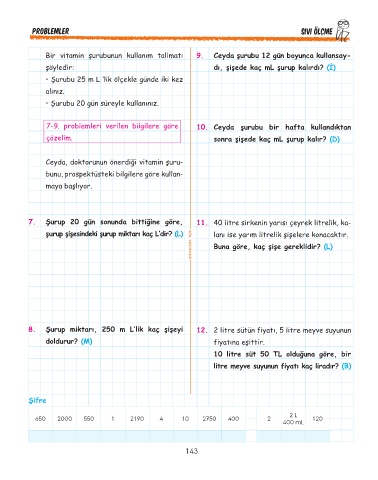 PROBLEMLER
SIVI ÖLÇME
Bir vitamin şurubunun kullanım talimatı
şöyledir:
• Şurubu 25 m L 'lik ölçekle günde iki kez
alınız.
• Şurubu 20 gün süreyle kullanınız.
7-9. problemleri verilen bilgilere göre
çözelim.
Ceyda, doktorunun önerdiği vitamin şuru-
bunu, prospektüsteki bilgilere göre kullan-
maya başlıyor.
7. Şurup 20 gün sonunda bittiğine göre,
şurup şişesindeki şurup miktarı kaç L'dir? (L)
8. Şurup miktarı, 250 m L'lik kaç şişeyi
doldurur? (M)
9. Ceyda şurubu 12 gün boyunca kullansay-
dı, şişede kaç mL şurup kalırdı? (İ)
10. Ceyda şurubu bir hafta kullandıktan
sonra şişede kaç mL şurup kalır? (D)
11. 40 litre sirkenin yarısı çeyrek litrelik, ka-
lanı ise yarım litrelik şişelere konacaktır.
Buna göre, kaç şişe gereklidir? (L)
12. 2 litre sütün fiyatı, 5 litre meyve suyunun
fiyatına eşittir.
10 litre süt 50 TL olduğuna göre, bir
litre meyve suyunun fiyatı kaç liradır? (B)
Şifre
650 2000 550 1 2190 4 10 2750 400 2 2 L 400 mL 120
143